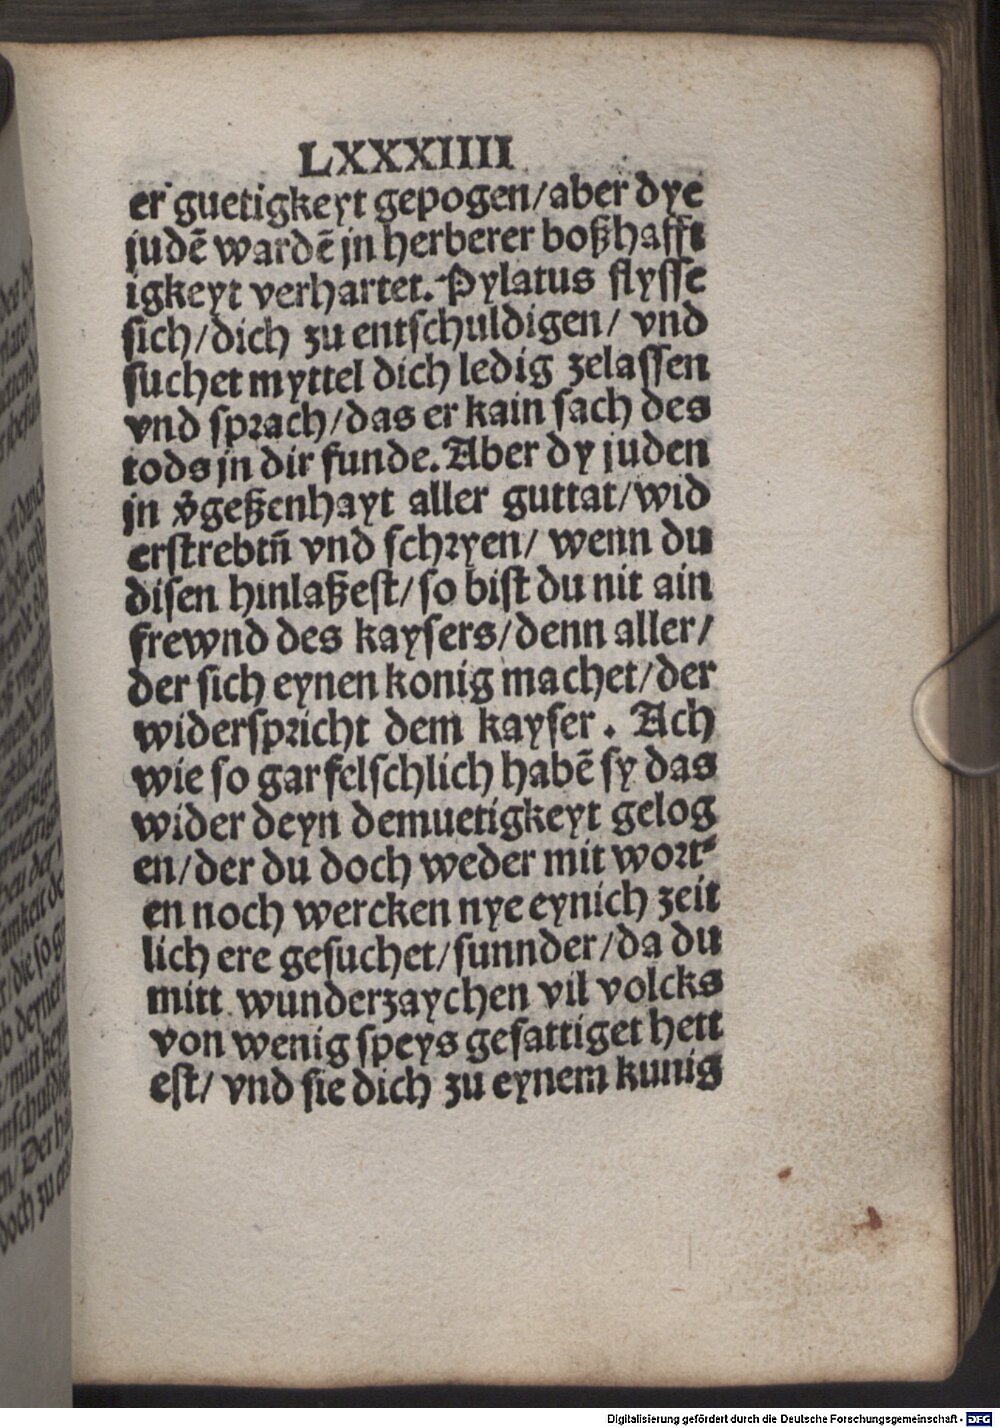 LXXXIIII
er guetigkeyt gepogen/aber dye
judē wardē jn herberer boßhafft
igkeyt verhartet. Pylatus flysse
sich/dich zu entschuldigen/ vnd
suchet myttel dich ledig zelassen
vnd sprach/das er kain sach des
tods jn dir funde. Aber dy juden
jn v̄geßenhayt aller guttat/wid
erstrebtn̄ vnd schryen/ wenn du
disen hinlaßest/so bist du nit ain
frewnd des kaysers/denn aller/
der sich eynen konig machet/der
widerspricht dem kayser. Ach
wie so gar felschlich habē sy das
wider deyn demuetigkeyt gelog
en/der du doch weder mit wort⸗
en noch wercken nye eynich zeit
lich ere gesuchet/sunnder/da du
mitt wunderzaychen vil volcks
von wenig speys gesattiget hett
est/ vnd sie dich zu eynem kunig
Digitalisierung gefördert durch die Deutsche Forschungsgemeinschaft - DFG